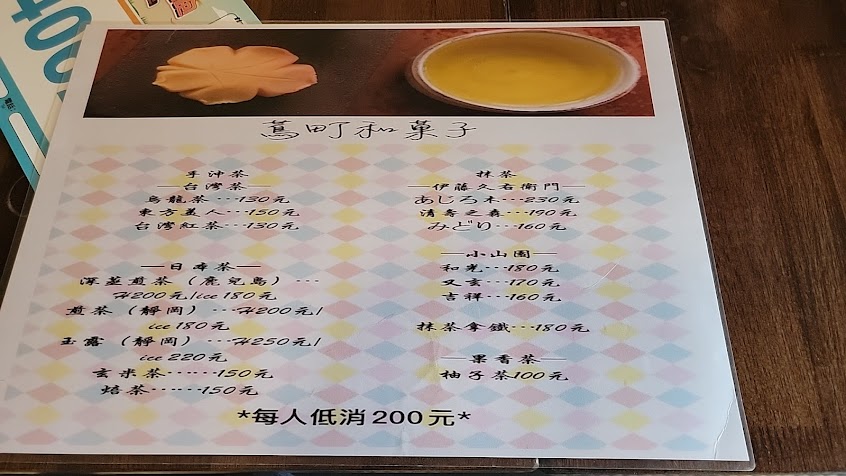 蔦町和菓子
手沖茶
—台湾茶—
烏龍茶…130元
東方美人…150元
台湾紅茶…130元
—日本茶—
深蒸煎茶（鹿児島）…
H200元/ice 180元
煎茶（靜岡）…H200元/
ice 180元
玉露（靜岡）…H250元/
ice 220元
玄米茶……150元
焙茶……150元
抹茶
—伊藤久右衛門—
あじろ木…230元
清寿之森…190元
みどり…160元
—小山園—
和光…180元
又玄…170元
吉祥…160元
抹茶拿鐵…180元
—果香茶—
柚子茶100元
*每人低消200元*